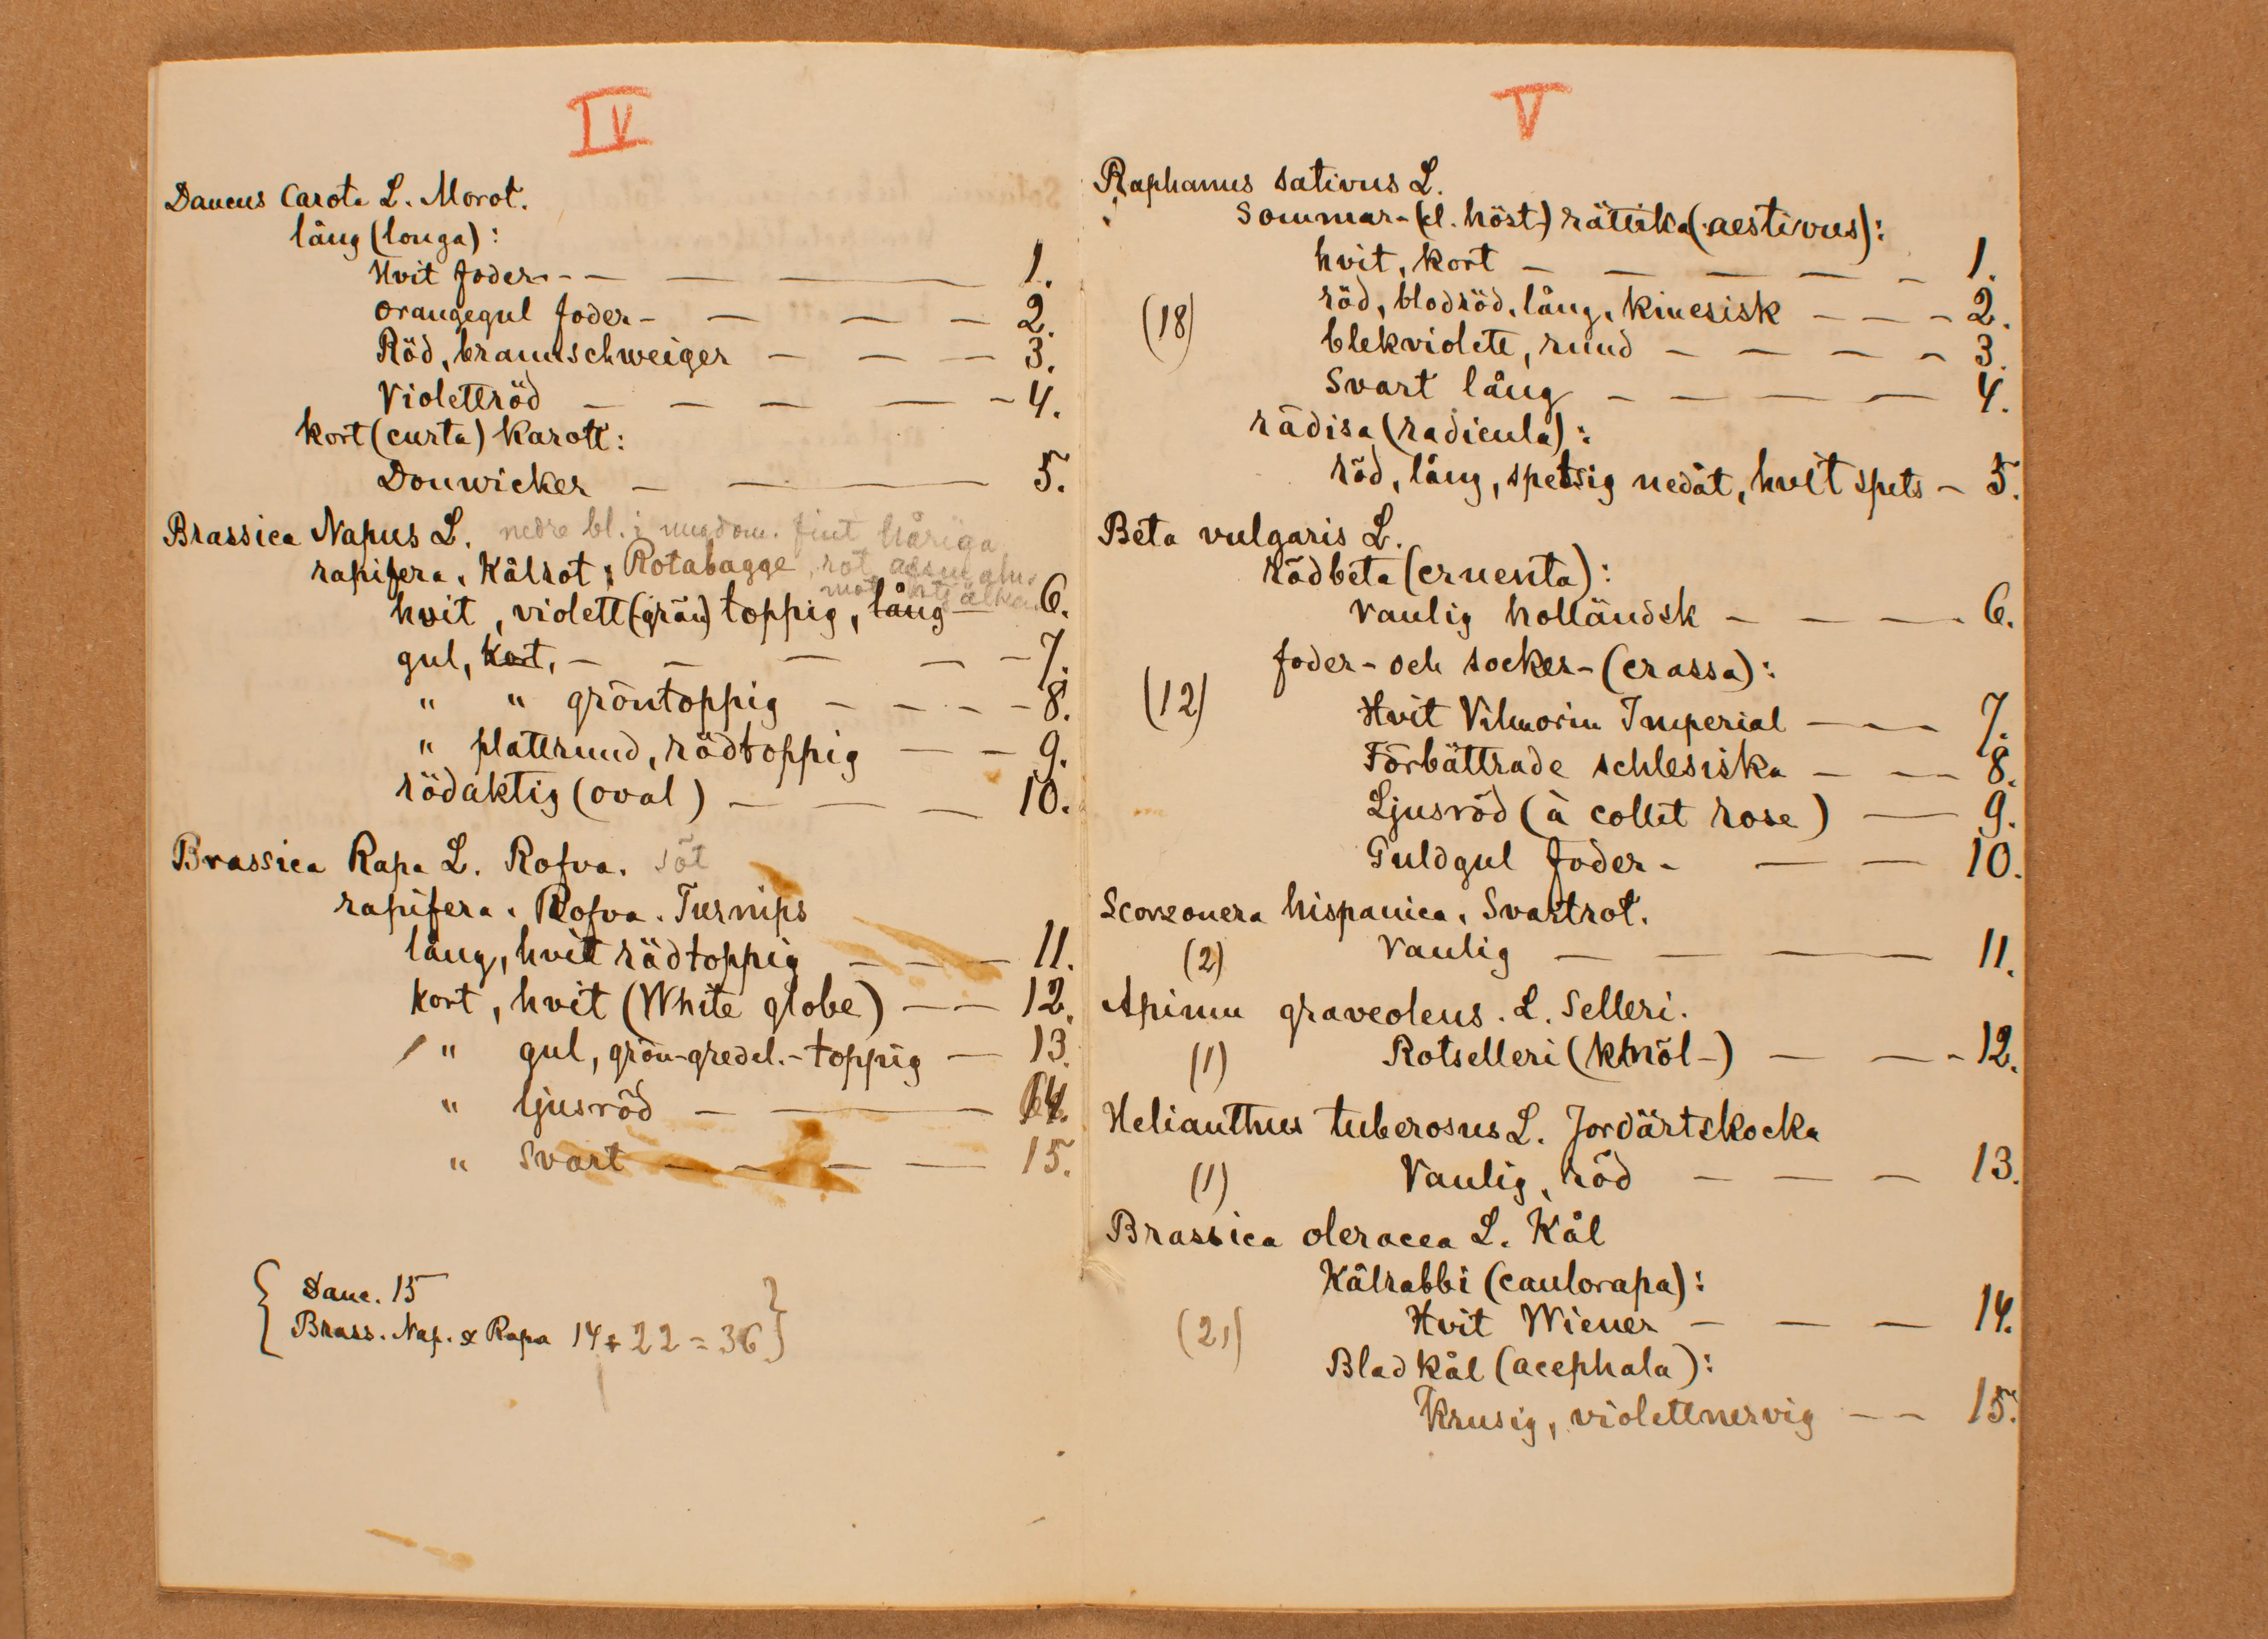 IV
Daucus Carota L. Morot.
lång (longa):
Hvit foder- - - — — — 1.
Orangegul foder - — — — 2.
Röd, braunschweiger — — — 3.
Violettröd — — — — - 4.
kort (curta) Karott:
Donwicker — — — 5.
Brassica Napus L. nedre bl. i ungdom. fint håriga
rapifera. Kålrot; Rotabagge, rot
mot
hvit, violett(grön) toppig, lång — 6.
gul, kort, — — — — - 7.
" " gröntoppig — — — - 8.
" plattrund, rödtoppig — — 9.
rödaktig (oval) — — — 10.
Brassica Rapa L. Rofva. söt
rapifera. Rofva. Turnips
lång, hvit rödtoppig — — — 11.
kort, hvit (White globe) — — 12.
" gul, grön-gredel.-toppig — 13.
" ljusröd — — — 14.
" Svart — — — — 15.
Dauc. 15
Brass. Nap. & Rapa 14 + 22 = 36
V
Raphanus sativus L.
Sommar- (el. höst-) rättika (aestivus):
hvit, kort — — — — - 1.
(18) röd, blodröd, lång, kinesisk — — - 2.
blekviolett, rund — — — - 3.
Svart lång — — — — 4.
rädisa (radicula):
röd, lång, spetsig nedåt, hvit spets — 5.
Beta vulgaris L.
Rödbeta (cruenta):
Vanlig holländsk — — — 6.
foder- och socker- (crassa):
(12) Hvit Vilmorin Imperial — — — 7.
Förbättrade schlesiska — — — 8.
Ljusröd (à collet rose) — 9.
Guldgul foder- — — 10.
Scorzonera hispanica. Svartrot.
(2) Vanlig — — — — 11.
Apium graveolens. L. Selleri.
(1) Rotselleri (knöl-) — — - 12.
Helianthus tuberosus L. Jordärtskocka
(1) Vanlig, röd — — — 13.
Brassica oleracea L. Kål
Kålrabbi (caulorapa):
(21) Hvit Wiener — — — 14.
Bladkål (acephala):
Krusig, violettnervig — — 15.